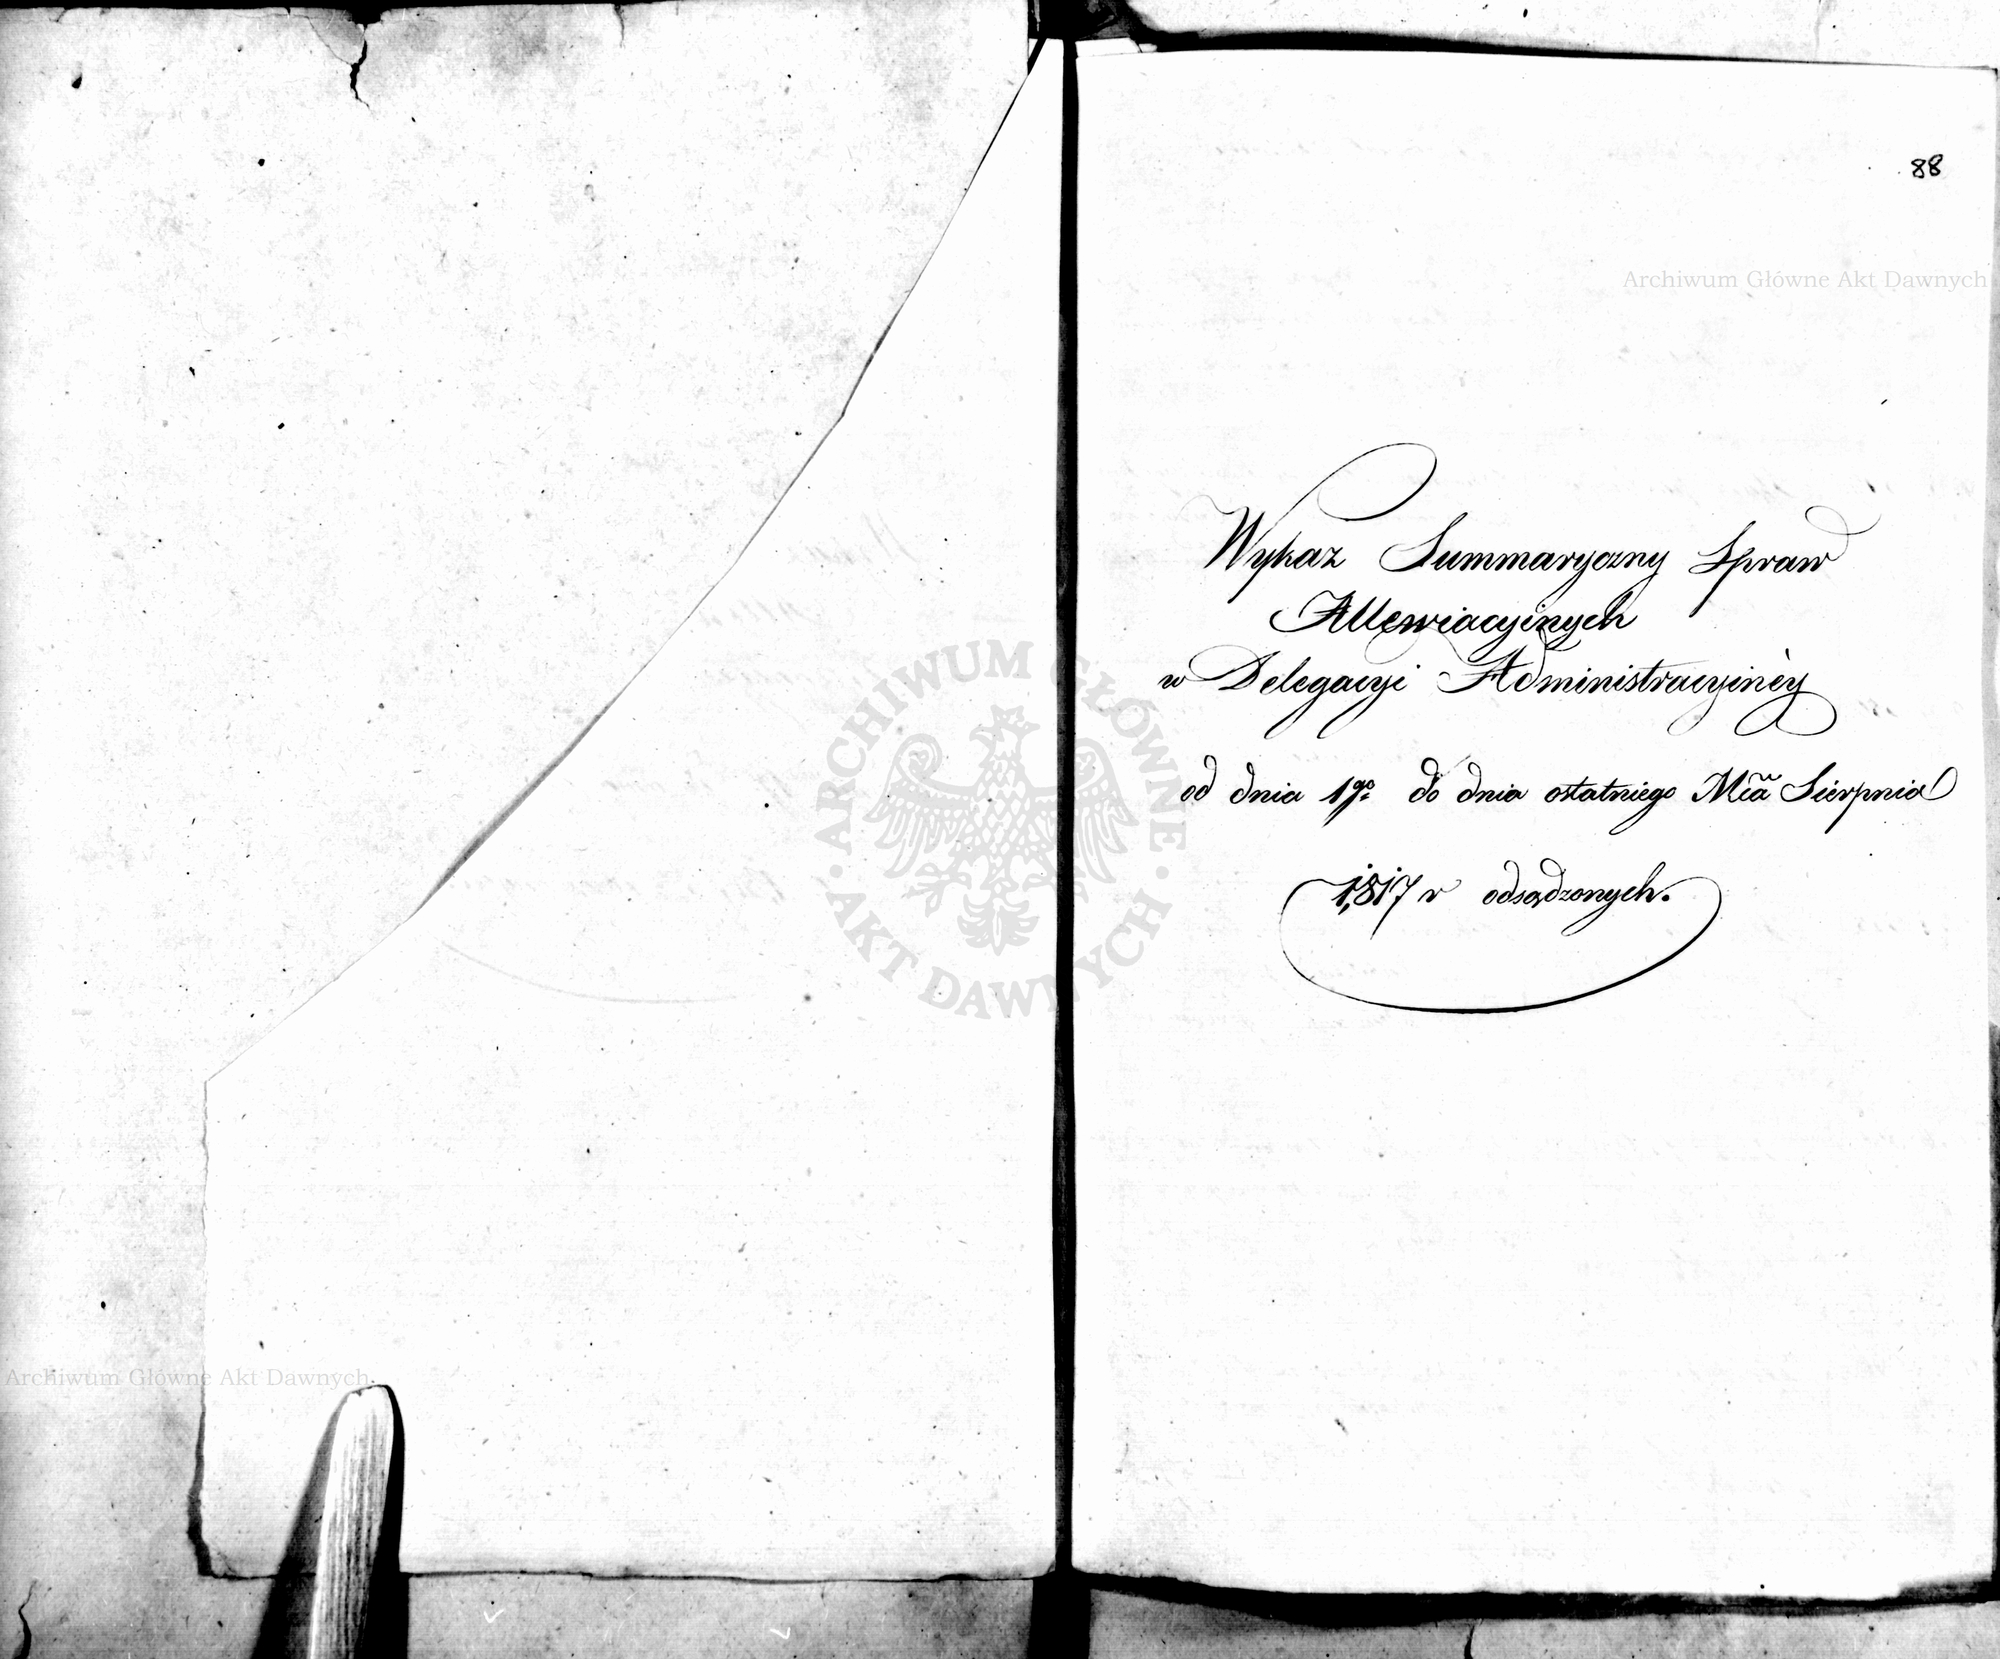 88
Archiwum Główne Akt Dawnych
Wykaz Summaryczny Spraw
Allewiacyinych
w Delegacyi Administracyinéy
od dnia 1go do dnia ostatniego Mca Sierpnia
1817 r odsądzonych.
ARCHIWUM GŁÓWNE · AKT DAWNYCH ·
Archiwum Główne Akt Dawnych